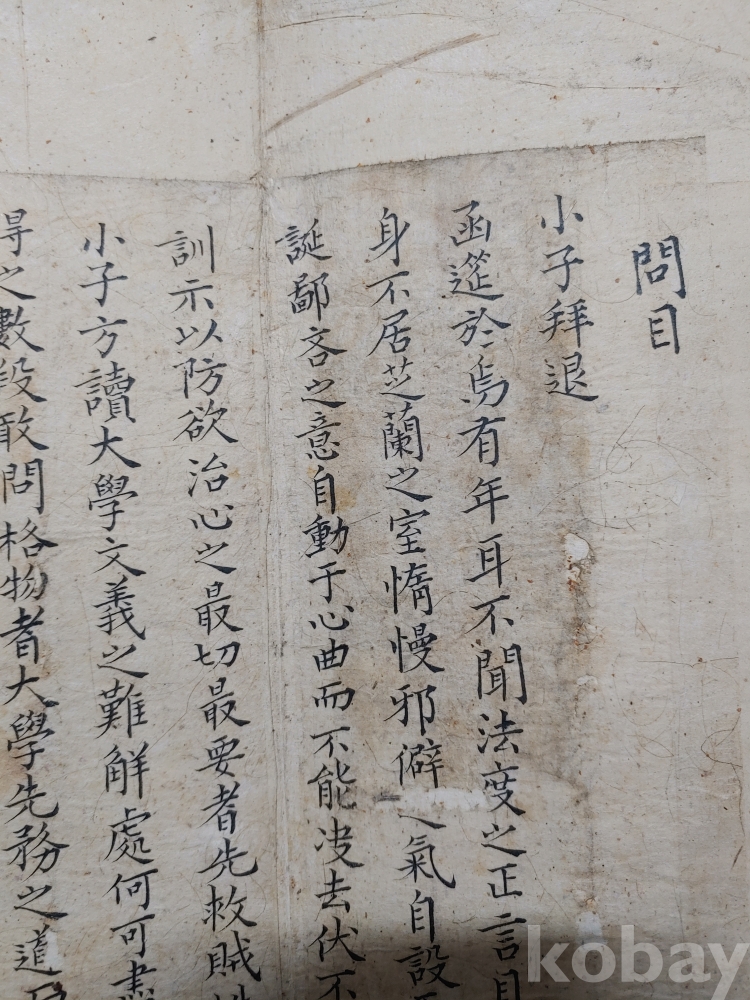 問目
小子拜退
函筵於焉有年耳不聞法度之正言目
身不居芝蘭之室惰慢邪僻之氣自設
誕鄙吝之意自動于心曲而不能决去伏不
訓示以防欲治心之最切最要者先救賊
小子方讀大學文義之難解處何可盡
得之數段敢問格物者大學先務之道
kobay